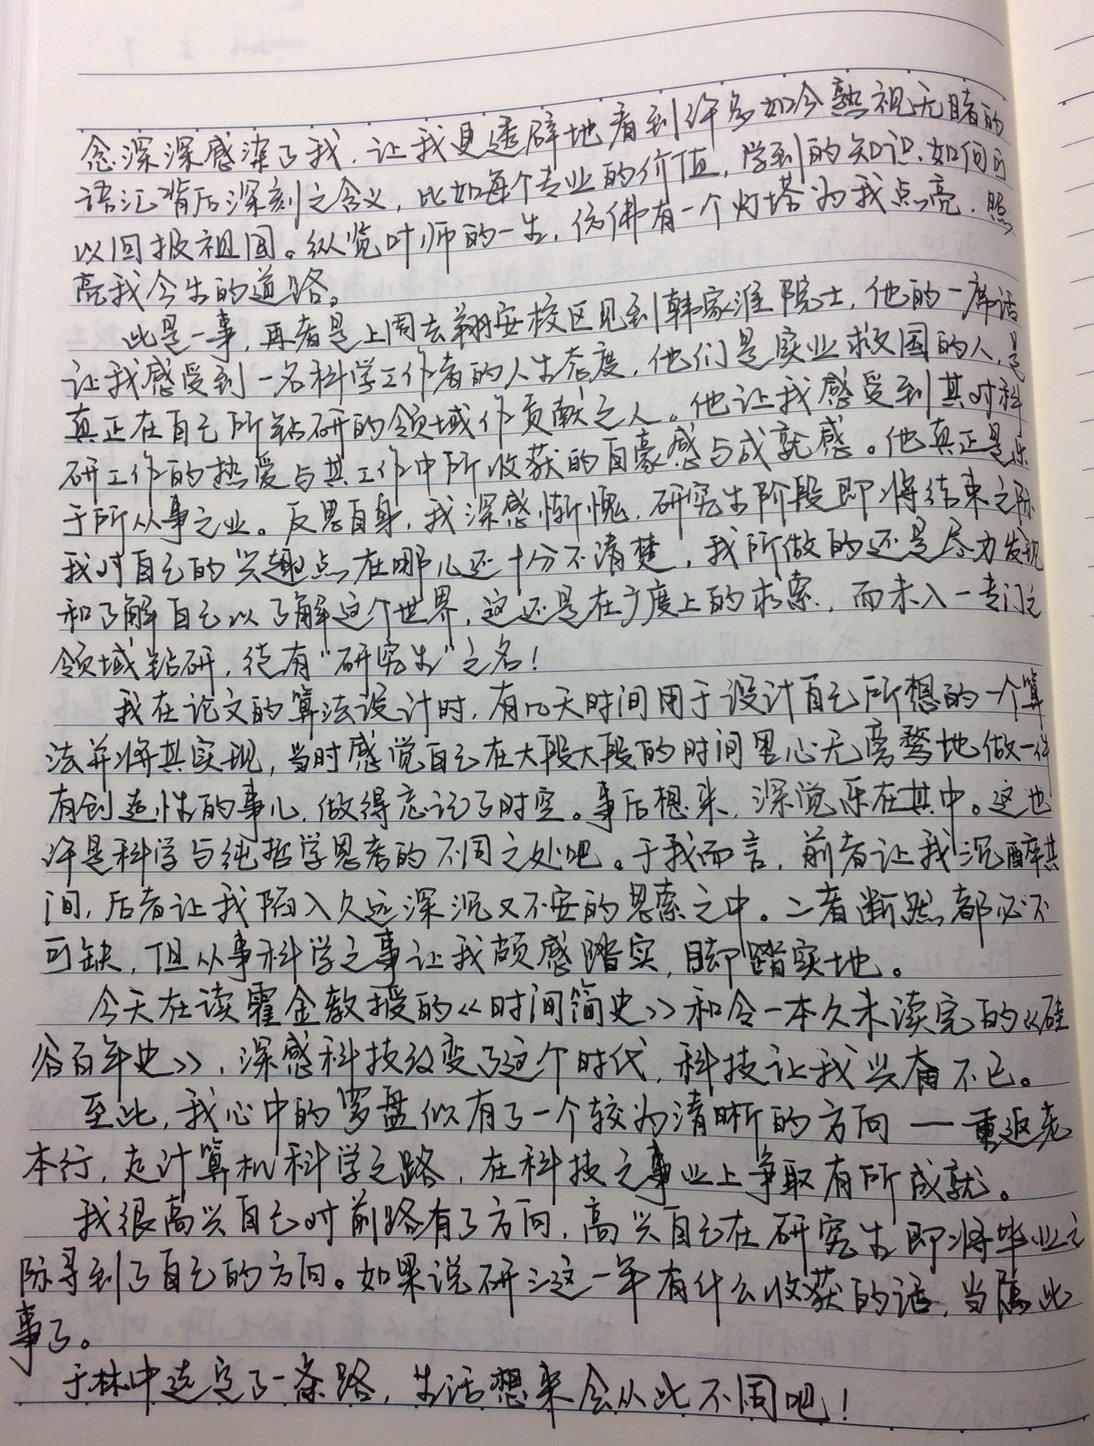 念深深感染了我，让我更透辟地看到许多如今熟视无睹的
语汇背后深刻之含义，比如每个专业的价值，学到的知识，如何可
以回报祖国。纵览叶师的一生，仿佛有一个灯塔为我点亮，照
亮我今生的道路。
此是一事，再者是上周去翔安校区见到韩家淮院士，他的一席话
让我感受到一名科学工作者的人生态度，他们是实业救国的人，是
真正在自己所钻研的领域作贡献之人。他让我感受到其对科
研工作的热爱与其工作中所收获的自豪感与成就感。他真正是乐
于所从事之业。反思自身，我深感惭愧，研究生阶段即将结束之际
我对自己的兴趣点在哪儿还十分不清楚，我所做的还是尽力发现
和了解自己以了解这个世界，这还是在广度上的求索，而未入一专门之
领域钻研，徒有“研究生”之名！
我在论文的算法设计时，有几天时间用于设计自己所想的一个算
法并将其实现，当时感觉自己在大段大段的时间里心无旁骛地做一件
有创造性的事儿，做得忘记了时空。事后想来，深觉乐在其中。这也
许是科学与纯哲学思考的不同之处吧。于我而言，前者让我沉醉其
间，后者让我陷入久远深沉又不安的思索之中。二者断然都必不
可缺，但从事科学之事让我颇感踏实，脚踏实地。
今天在读霍金教授的《时间简史》和令一本久未读完的《硅
谷百年史》，深感科技改变了这个时代，科技让我兴奋不已。
至此，我心中的罗盘似有了一个较为清晰的方向——重返老
本行，走计算机科学之路，在科技之事业上争取有所成就。
我很高兴自己对前路有了方向，高兴自己在研究生即将毕业之
际寻到了自己的方向。如果说研三这一年有什么收获的话，当属此
事了。
于林中选定了一条路，生活想来会从此不同吧！